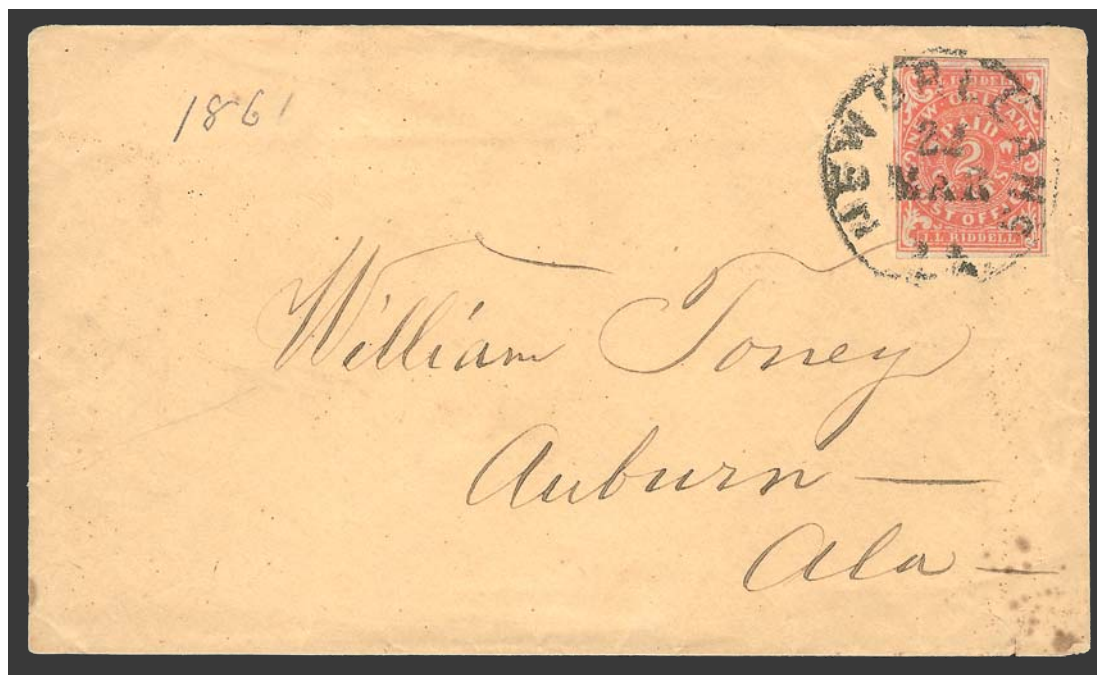 1861
NEW ORLEANS
22
MAR
J.L. RIDDELL
NEW ORLEANS
PAID
2
CTS
POST OFFICE
J.L RIDDELL
William Toney
Auburn —
Ala —